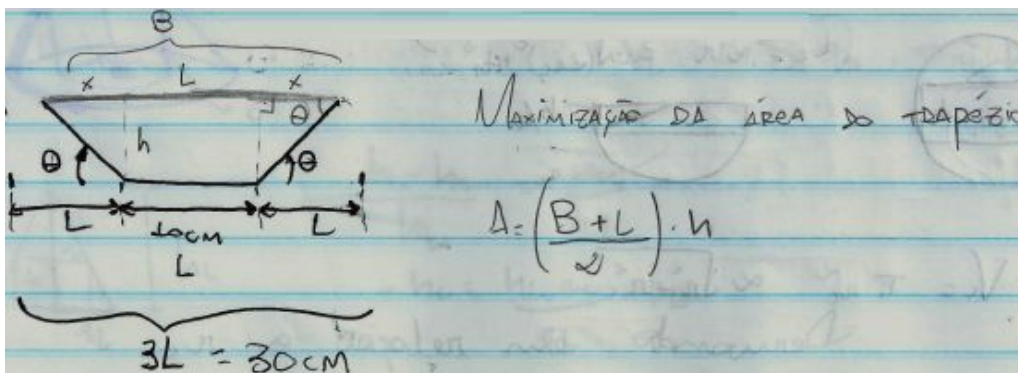 B
x L x
θ
h
θ θ
L 10cm L
L
3L = 30cm
Maximização da área do trapézio
A = (B+L / 2) . h